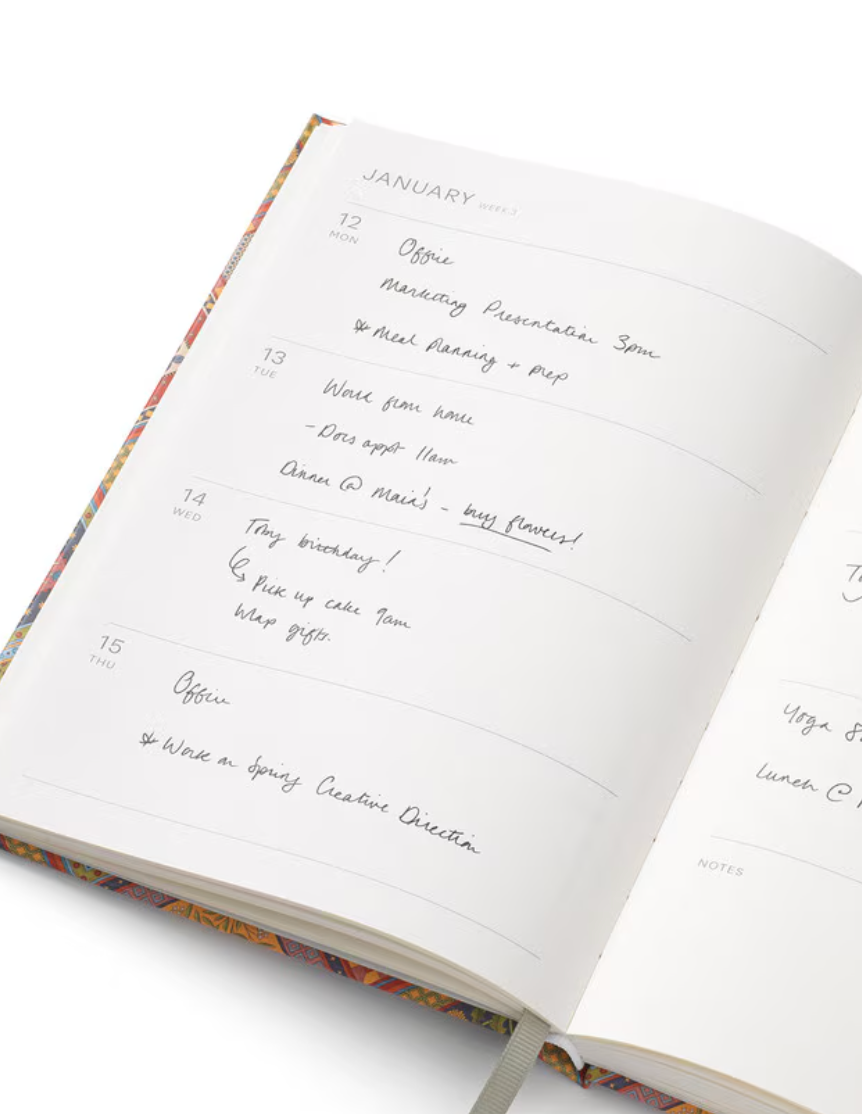 JANUARY WEEK 3
12
MON
Office
Marketing Presentation 3pm
* Meal planning + prep
13
TUE
Work from home
- Docs appt 11am
Dinner @ Maia's - buy flowers!
14
WED
Tony birthday!
Pick up cake 9am
Wrap gifts.
15
THU
Office
* Work on Spring Creative Direction
Yoga
Lunch @
NOTES